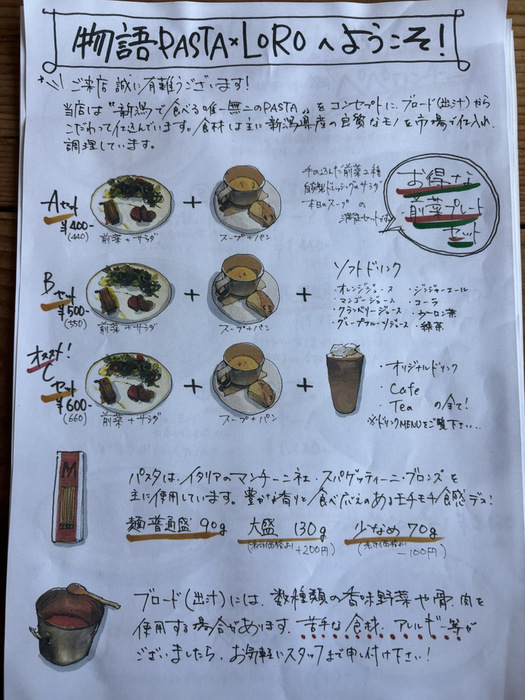 物語PASTA×LOROへようこそ!
ご来店 誠に有難うございます!
当店は"新潟で食べる唯一無二のPASTA"をコンセプトに、ブロード(出汁)から
こだわって仕込んでいます。食材は主に新潟県産の良質なモノを市場で仕入れ、
調理しています。
手の込んだ前菜2種
自家製ドレッシングのサラダ
本日のスープ の
満足セットです
お得な
前菜プレート
セット
Aセット
¥400-
(440)
前菜+サラダ
+
スープ+パン
Bセット
¥500-
(550)
前菜+サラダ
+
スープ+パン
+
ソフトドリンク
・オレンジジュース ・ジンジャーエール
・マンゴージュース ・コーラ
・クランベリージュース ・ウーロン茶
・グレープフルーツジュース ・緑茶
オススメ!
Cセット
¥600-
(660)
前菜+サラダ
+
スープ+パン
+
・オリジナルドリンク
・Cafe
・Tea の全て!
※ドリンクMENUをご覧下さい...
M
パスタは、イタリアのマンチーニ社・スパゲッティーニ・ブロンズを
主に使用しています。豊かな香りと食べ応えのあるモチモチ食感デス!
麺普通盛 90g 大盛 130g 少なめ 70g
(表示価格より+200円) (表示価格より-100円)
ブロード(出汁)には、数種類の香味野菜や骨、肉を
使用する場合があります、苦手な食材、アレルギー等が
ございましたら、お気軽にスタッフまで申し付け下さい!